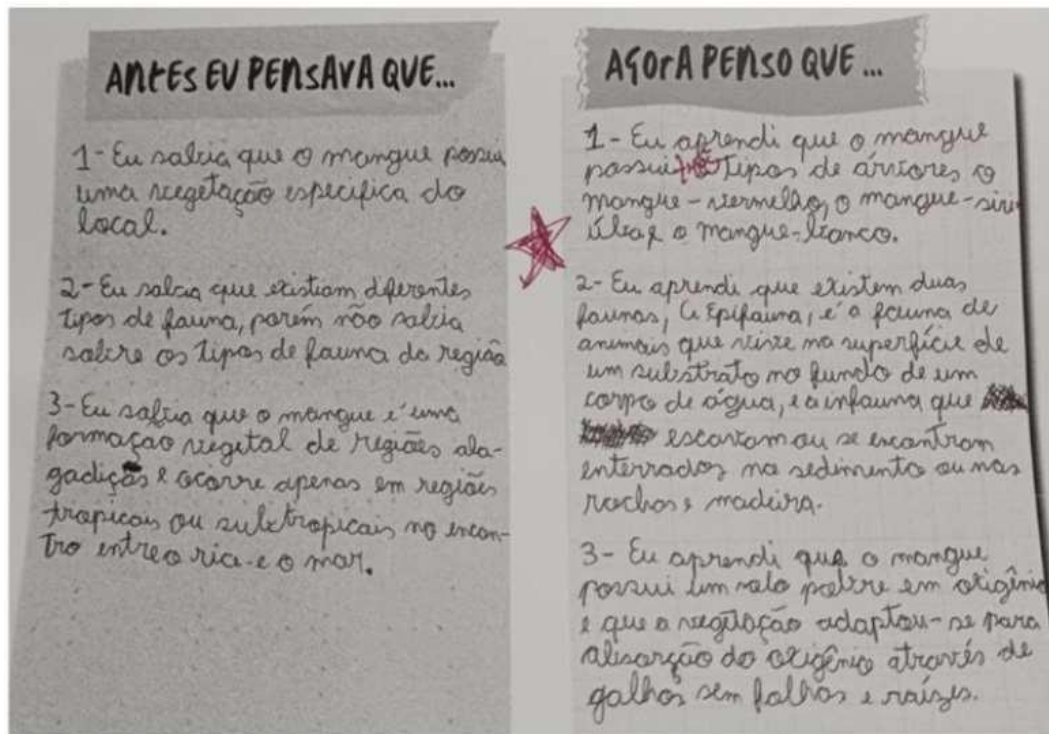 ANTES EU PENSAVA QUE...
1- Eu sabia que o mangue possui
uma vegetação específica do
local.
2- Eu sabia que existiam diferentes
tipos de fauna, porém não sabia
sobre os tipos de fauna da região
3- Eu sabia que o mangue é uma
formação vegetal de regiões ala-
gadiças e ocorre apenas em regiões
tropicais ou subtropicais no encon-
tro entre o rio e o mar.
AGORA PENSO QUE...
1- Eu aprendi que o mangue
possui três tipos de árvores o
mangue-vermelho, o mangue-siri-
úba e o mangue-branco.
2- Eu aprendi que existem duas
faunas, a Epifauna, é a fauna de
animais que vive na superfície de
um substrato no fundo de um
corpo de água, e a infauna que
escavam ou se encontram
enterrados no sedimento ou nas
rochas e madeira.
3- Eu aprendi que o mangue
possui um solo pobre em oxigênio
e que a vegetação adaptou-se para
absorção do oxigênio através de
galhos sem folhas e raízes.